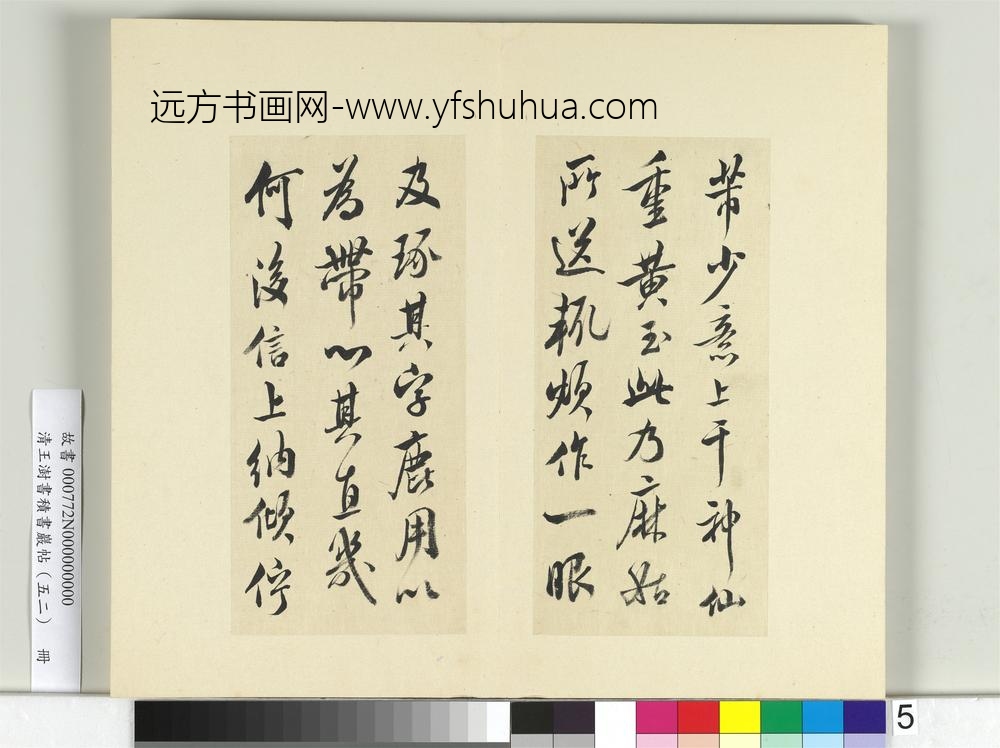 远方书画网-www.yfshuhua.com
芾少意上干神仙
重黄玉此乃麻姑
所送輒煩作一眼
及琢其字鹿用以
為帶心其直幾
何後信上納傾佇
故書 000772N000000000
清王澍書積書巖帖(五二) 冊
5